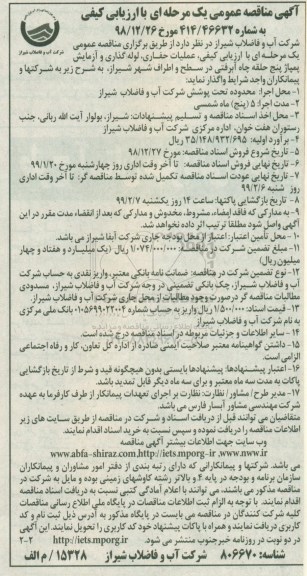 آگهی مناقصه عمومی یک مرحله ای با ارزیابی کیفی
به شماره ۴۱۴/۴۶۶۳۲ مورخ ۹۸/۱۲/۲۶
شرکت آب و فاضلاب شیراز
شرکت آب و فاضلاب شیراز در نظر دارد از طریق برگزاری مناقصه عمومی
یک مرحله ای با ارزیابی کیفی، عملیات حفاری، لوله گذاری و آزمایش
پمپاژ پنج حلقه چاه آبرفتی در سطح و اطراف شهر شیراز، به شرح زیر به شرکتها و
پیمانکاران واجد شرایط واگذار نماید:
۱- محل اجرا: محدوده تحت پوشش شرکت آب و فاضلاب شیراز
۲- مدت اجرا: ۵ (پنج) ماه شمسی
۳- محل اخذ اسناد مناقصه و تسلیم پیشنهادات: شیراز، بولوار آیت الله ربانی، جنب
رستوران هفت خوان، اداره مرکزی شرکت آب و فاضلاب شیراز
۴- برآورد اولیه: ۳۵/۱۴۸/۹۳۲/۶۹۵ ریال
۵- تاریخ شروع فروش اسناد مناقصه: مورخ ۹۸/۱۲/۲۷
۶- تاریخ نهایی فروش اسناد مناقصه: تا آخر وقت اداری روز چهارشنبه مورخ ۹۹/۱/۲۰
۷- تاریخ نهایی عودت اسناد مناقصه تکمیل شده توسط مناقصه گر: تا آخر وقت اداری
روز شنبه ۹۹/۲/۶
۸- تاریخ بازگشایی پاکتها: ساعت ۱۴ روز یکشنبه ۹۹/۲/۷
۹- به مدارکی که فاقد امضاء، مشروط، مخدوش و مدارکی که بعد از انقضاء مدت مقرر در این
آگهی واصل شود مطلقا ترتیب اثر داده نخواهد شد.
۱۰- محل تأمین اعتبار: اعتبار از محل بودجه جاری شرکت آبفا شیراز می باشد.
۱۱- مبلغ تضمین شرکت در مناقصه: ۱/۰۷۴/۰۰۰/۰۰۰ ریال (یک میلیارد و هفتاد و چهار
میلیون ریال)
۱۲- نوع تضمین شرکت در مناقصه: ضمانت نامه بانکی معتبر، واریز نقدی به حساب شرکت
آب و فاضلاب شیراز، چک بانکی تضمینی در وجه شرکت آب و فاضلاب شیراز، مسدودی
مطالبات مناقصه گر درصورت وجود مطالبات از محل جاری شرکت آب و فاضلاب شیراز.
۱۳- قیمت اسناد: ۱/۵۰۰/۰۰۰ ریال واریز به حساب شماره ۰۱۰۵۶۹۹۰۲۲۰۰۴ بانک ملی مرکزی
به نام شرکت آب و فاضلاب شیراز
۱۴- سایر اطلاعات و جزئیات مربوطه در اسناد مناقصه درج شده است.
۱۵- داشتن گواهینامه معتبر صلاحیت ایمنی صادره از اداره کل تعاون، کار و رفاه اجتماعی
الزامی است.
۱۶- اعتبار پیشنهادها: پیشنهادها بایستی بدون هیچگونه قید و شرط از تاریخ بازگشایی
پاکات به مدت سه ماه معتبر و برای سه ماه دیگر قابل تمدید باشد.
۱۷- مدیر طرح/ مشاور/ نظارت: نظارت بر اجرای تعهدات پیمانکار از طرف کارفرما به عهده
شرکت مهندسی مشاور آبسار فارس می باشد.
متقاضیان می توانند قبل از دریافت اسناد و شرکت در مناقصه از طریق سایت های زیر
اطلاعات مناقصه را دریافت نموده و سپس نسبت به خرید اسناد اقدام نمایند.
وب سایت جهت اطلاعات بیشتر آگهی مناقصه
www.abfa-shiraz.com.http://iets.mporg-ir .www.nww.ir
می باشد. شرکتها و پیمانکارانی که دارای رتبه بندی از دفتر امور مشاوران و پیمانکاران
سازمان برنامه و بودجه در پایه ۴ و بالاتر رشته کاوشهای زمینی بوده و مایل به شرکت در
مناقصه مذکور می باشند، می توانند با اعلام آمادگی کتبی نسبت به دریافت اسناد مناقصه
اقدام نمایند. با توجه به الزام ثبت اطلاعات مناقصات در پایگاه ملی اطلاع رسانی مناقصات
کلیه شرکت کنندگان در مناقصه می بایست در پایگاه مذکور به آدرس ذیل ثبت نام و کد
کاربری دریافت نمایند و همراه با پاکات پیشنهاد خود کد کاربری را تحویل نمایند. این آگهی
در دو نوبت در روزنامه خبرجنوب منتشر می شود. http://iets.mporg.ir ۲-۲
شناسه: ۸۰۶۶۷۰ شرکت آب و فاضلاب شیراز ۱۵۳۲۸ / م الف